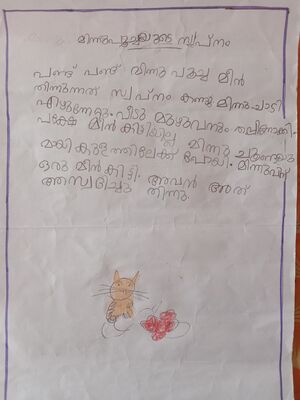 മിന്നുപൂച്ചയുടെ സ്വപ്നം
പണ്ട് പണ്ട് മിന്നു പൂച്ച മീൻ
തിന്നുന്നത് സ്വപ്നം കണ്ടു മിന്നു ചാടി
എഴുന്നേറ്റു. വീടു മുഴുവനും
പക്ഷേ മീൻ കിട്ടിയില്ല മിന്നു
കുളത്തിലേക്ക് പോയി. മിന്നുവിന്
ഒരു മീൻ കിട്ടി. അവൻ അത്
ആസ്വദിച്ചു തിന്നു.